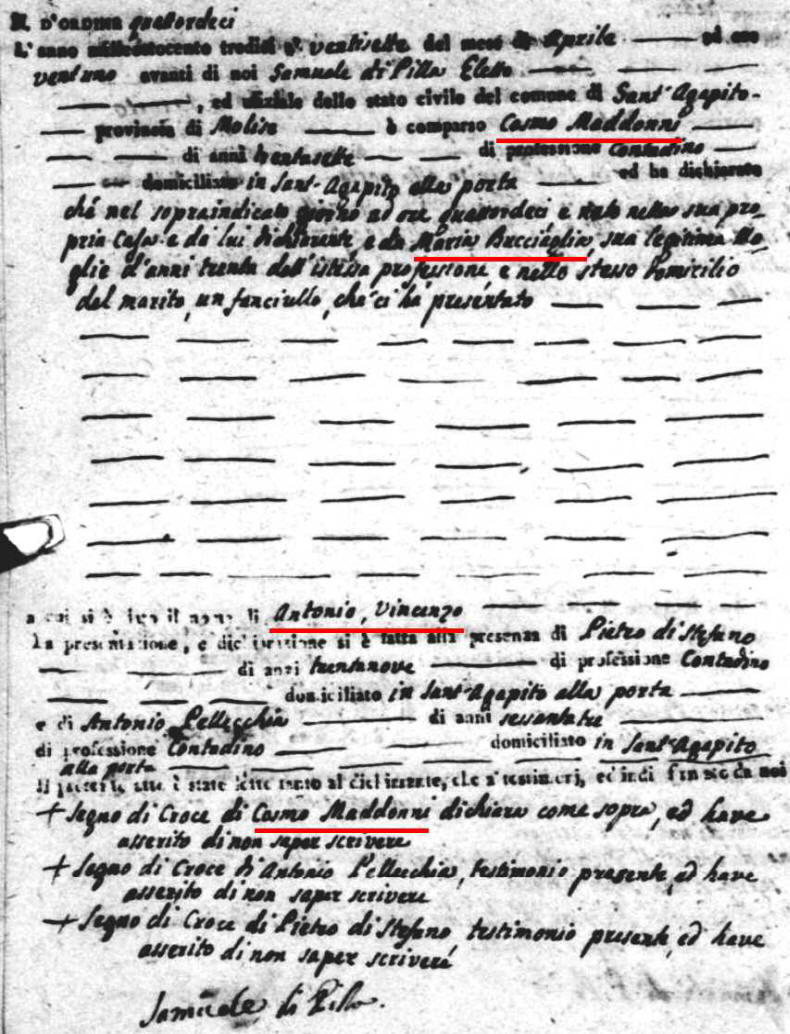 N. D'ORDINE quattordeci
L'anno milleottocento tredici a' ventisette del mese di Aprile ed ore
ventuno avanti di noi Samuele di Pilla Eletto
, ed uffiziale dello stato civile del comune di Sant'Agapito
provincia di Molise è comparso Cosmo Maddonni
di anni trentasette di professione Contadino
domiciliato in Sant'Agapito alla porta ed ha dichiarato
ché nel sopraindicato giorno ad ore quattordeci e nato nella sua pro-
pria Casa e da lui dichiarante, e da Maria Bucciaglia, sua legitima Mo-
glie d'anni trenta dell'istessa professione, e nello stesso domicilio
del marito, un fanciullo, ché ci há presentato
a cui si è dato il nome di Antonio, Vincenzo
La presentazione, e dichiarazione si è fatta alla presenza di Pietro di Stefano
di anni trentanove di professione Contadino
domiciliato in Sant'Agapito alla porta
e di Antonio Pellecchia di anni sessantatre
di professione Contadino domiciliato in Sant'Agapito
alla porta
Il presente atto è stato letto tanto al dichiarante, che a' testimonj, ed indi firmato da noi
+ Segno di Croce di Cosmo Maddonni dichiara come sopra, ed have
asserito di non saper scrivere
+ Segno di Croce di Antonio Pellecchia, testimonio presente, ed have
asserito di non saper scrivere
+ Segno di Croce di Pietro di Stefano testimonio presente, ed have
asserito di non saper scriveré
Samuele di Pilla.